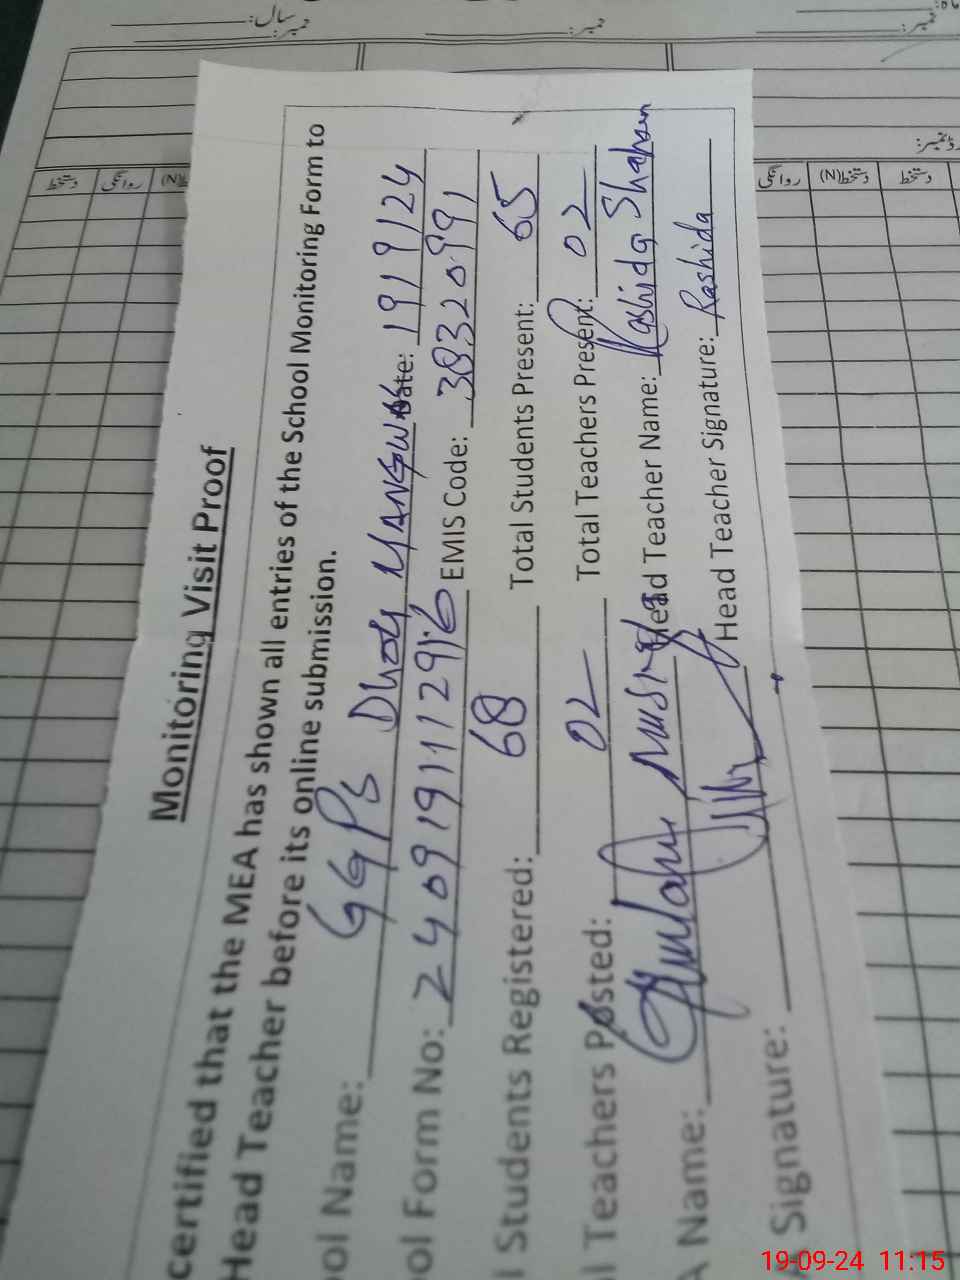 سال:
نمبر:
نمبر:
نمبر:
دستخط
روانگی
روانگی
دستخط(N)
دستخط
Monitoring Visit Proof
certified that the MEA has shown all entries of the School Monitoring Form to
Head Teacher before its online submission.
ool Name: GGPS Dhok Date: 19/9/24
ool Form No: EMIS Code: 38320991
l Students Registered: 68 Total Students Present: 65
l Teachers Posted: 02 Total Teachers Present: 02
A Name: Head Teacher Name: Rashida Shaheen
A Signature: Head Teacher Signature: Rashida
19-09-24 11:15